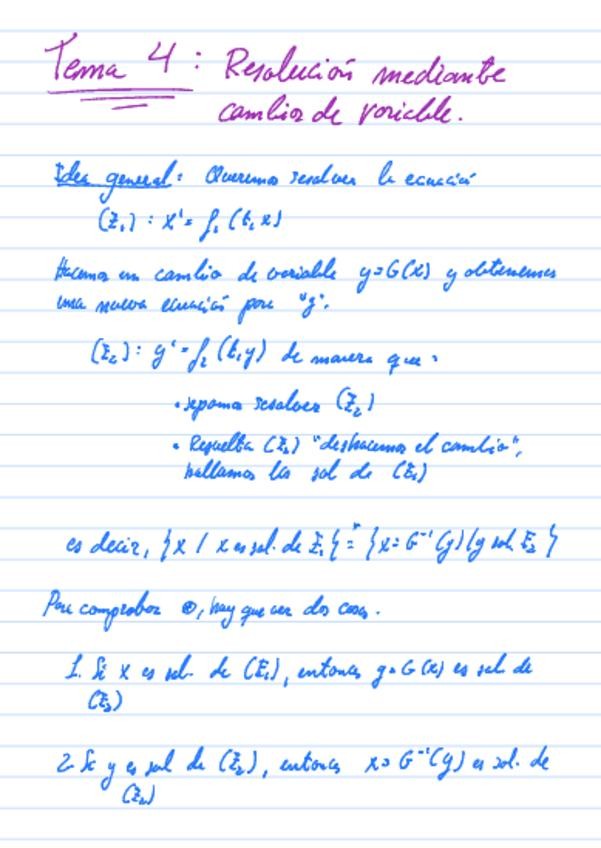 Tema 4: Resolución mediante
cambios de variable.
Idea general: Queremos resolver la ecuación
(E₁): x' = f₁(t, x)
Hacemos un cambio de variable y=G(x) y obtenemos
una nueva ecuación para "y".
(E₂): y' = f₂(t, y) de manera que:
• sepamos resolver (E₂)
• Resuelta (E₂) "deshacemos el cambio",
hallamos las sol de (E₁)
es decir, {x / x es sol. de E₁} = {x = G⁻¹(y) / y sol. E₂}
Para comprobar ⊛, hay que ver dos cosas.
1. Si x es sol. de (E₁), entonces y = G(x) es sol de
(E₂)
2. Si y es sol de (E₂), entonces x = G⁻¹(y) es sol. de